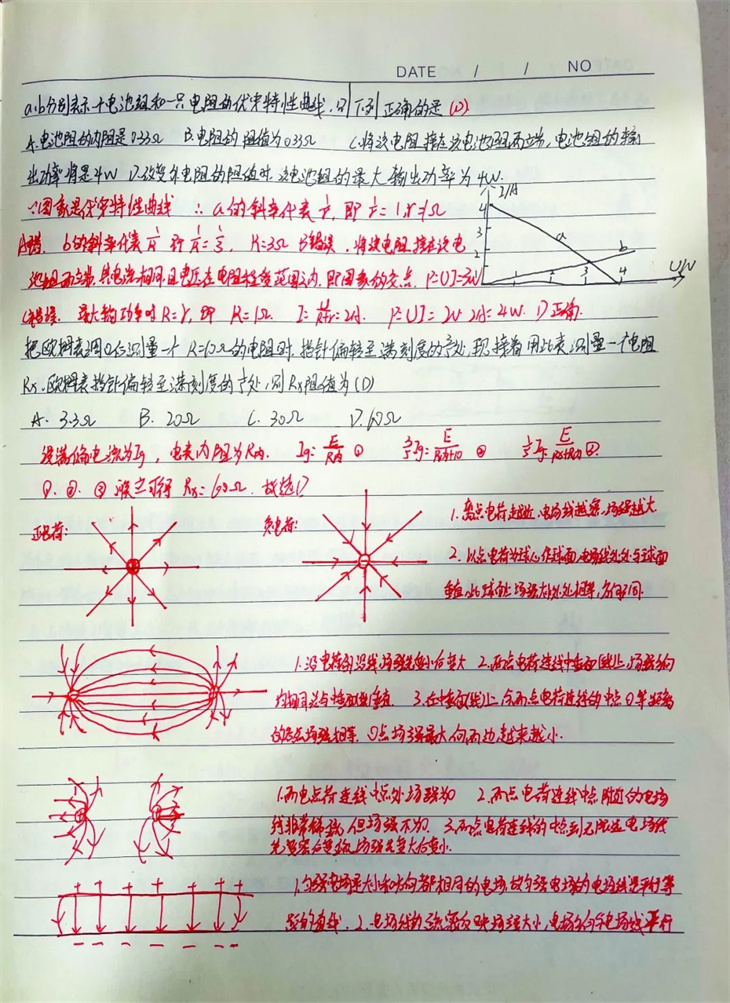 DATE / / NO
a、b分别表示一个电池组和一只电阻的伏安特性曲线.则下列正确的是(D)
A.电池阻的内阻是0.33Ω B.电阻的阻值为0.33Ω C.将该电阻接在该电池组两端,电池组的输
出功率将是4W D.改变外电阻的阻值时.该电池组的最大输出功率为4W.
I/A
4
3
2
a
b
1 3 4
U/V
∵图象是伏安特性曲线 ∴a的斜率代表1/r,即1/r=1,r=1Ω
A错. b的斜率代表1/R 即1/R=1/3, R=3Ω B错误.将该电阻接在该电
池组两端,其电流相同,且电压在电阻 范围之内,即图象的交点,P=UI=3W
C错误. 最大输出功率时R=r,即 R=1Ω. I= =2A. P=UI=2V·2A=4W. D正确.
把欧姆表调0后测量一个R=10Ω的电阻时.指针偏转至满刻度的 处.现接着用此表测量一个电阻
Rx.欧姆表指针偏转至满刻度的 处,则Rx阻值为(D)
A. 3.3Ω B. 20Ω C. 30Ω D.60Ω
设满偏电流为Ig,电表内阻为R内. Ig=E/R内 ① Ig=E/R内+10 ② Ig=E/R内+Rx ③.
①.②.③联立可得 Rx=60Ω.故选D
正电荷:
负电荷:
1.离点电荷越近,电场线越密,场强越大.
2.以点电荷为球心作球面,电场线处处与球面
垂直,此球面上场强大小处处相等,方向不同.
1.沿电荷的连线,场强先变小后变大 2.两点电荷连线中垂面(线)上,场强方向
均相同,总与中垂面垂直. 3.在中垂面(线)上,与两点电荷连线的中点O等距离
的各点场强相等. O点场强最大,向两边越来越小.
1.两电点荷连线中点处场强为0 2.两点电荷连线中点附近的电场
线非常稀疏,但场强不为0. 3.两点电荷连线的中点到无限远电场线
先变密后变疏,场强先变大后变小.
+ + + + + + +
1.匀强电场是大小和方向都相同的电场,故匀强电场的电场线是平行等
距的直线. 2.电场线的疏密反映场强大小,电场方向与电场线平行